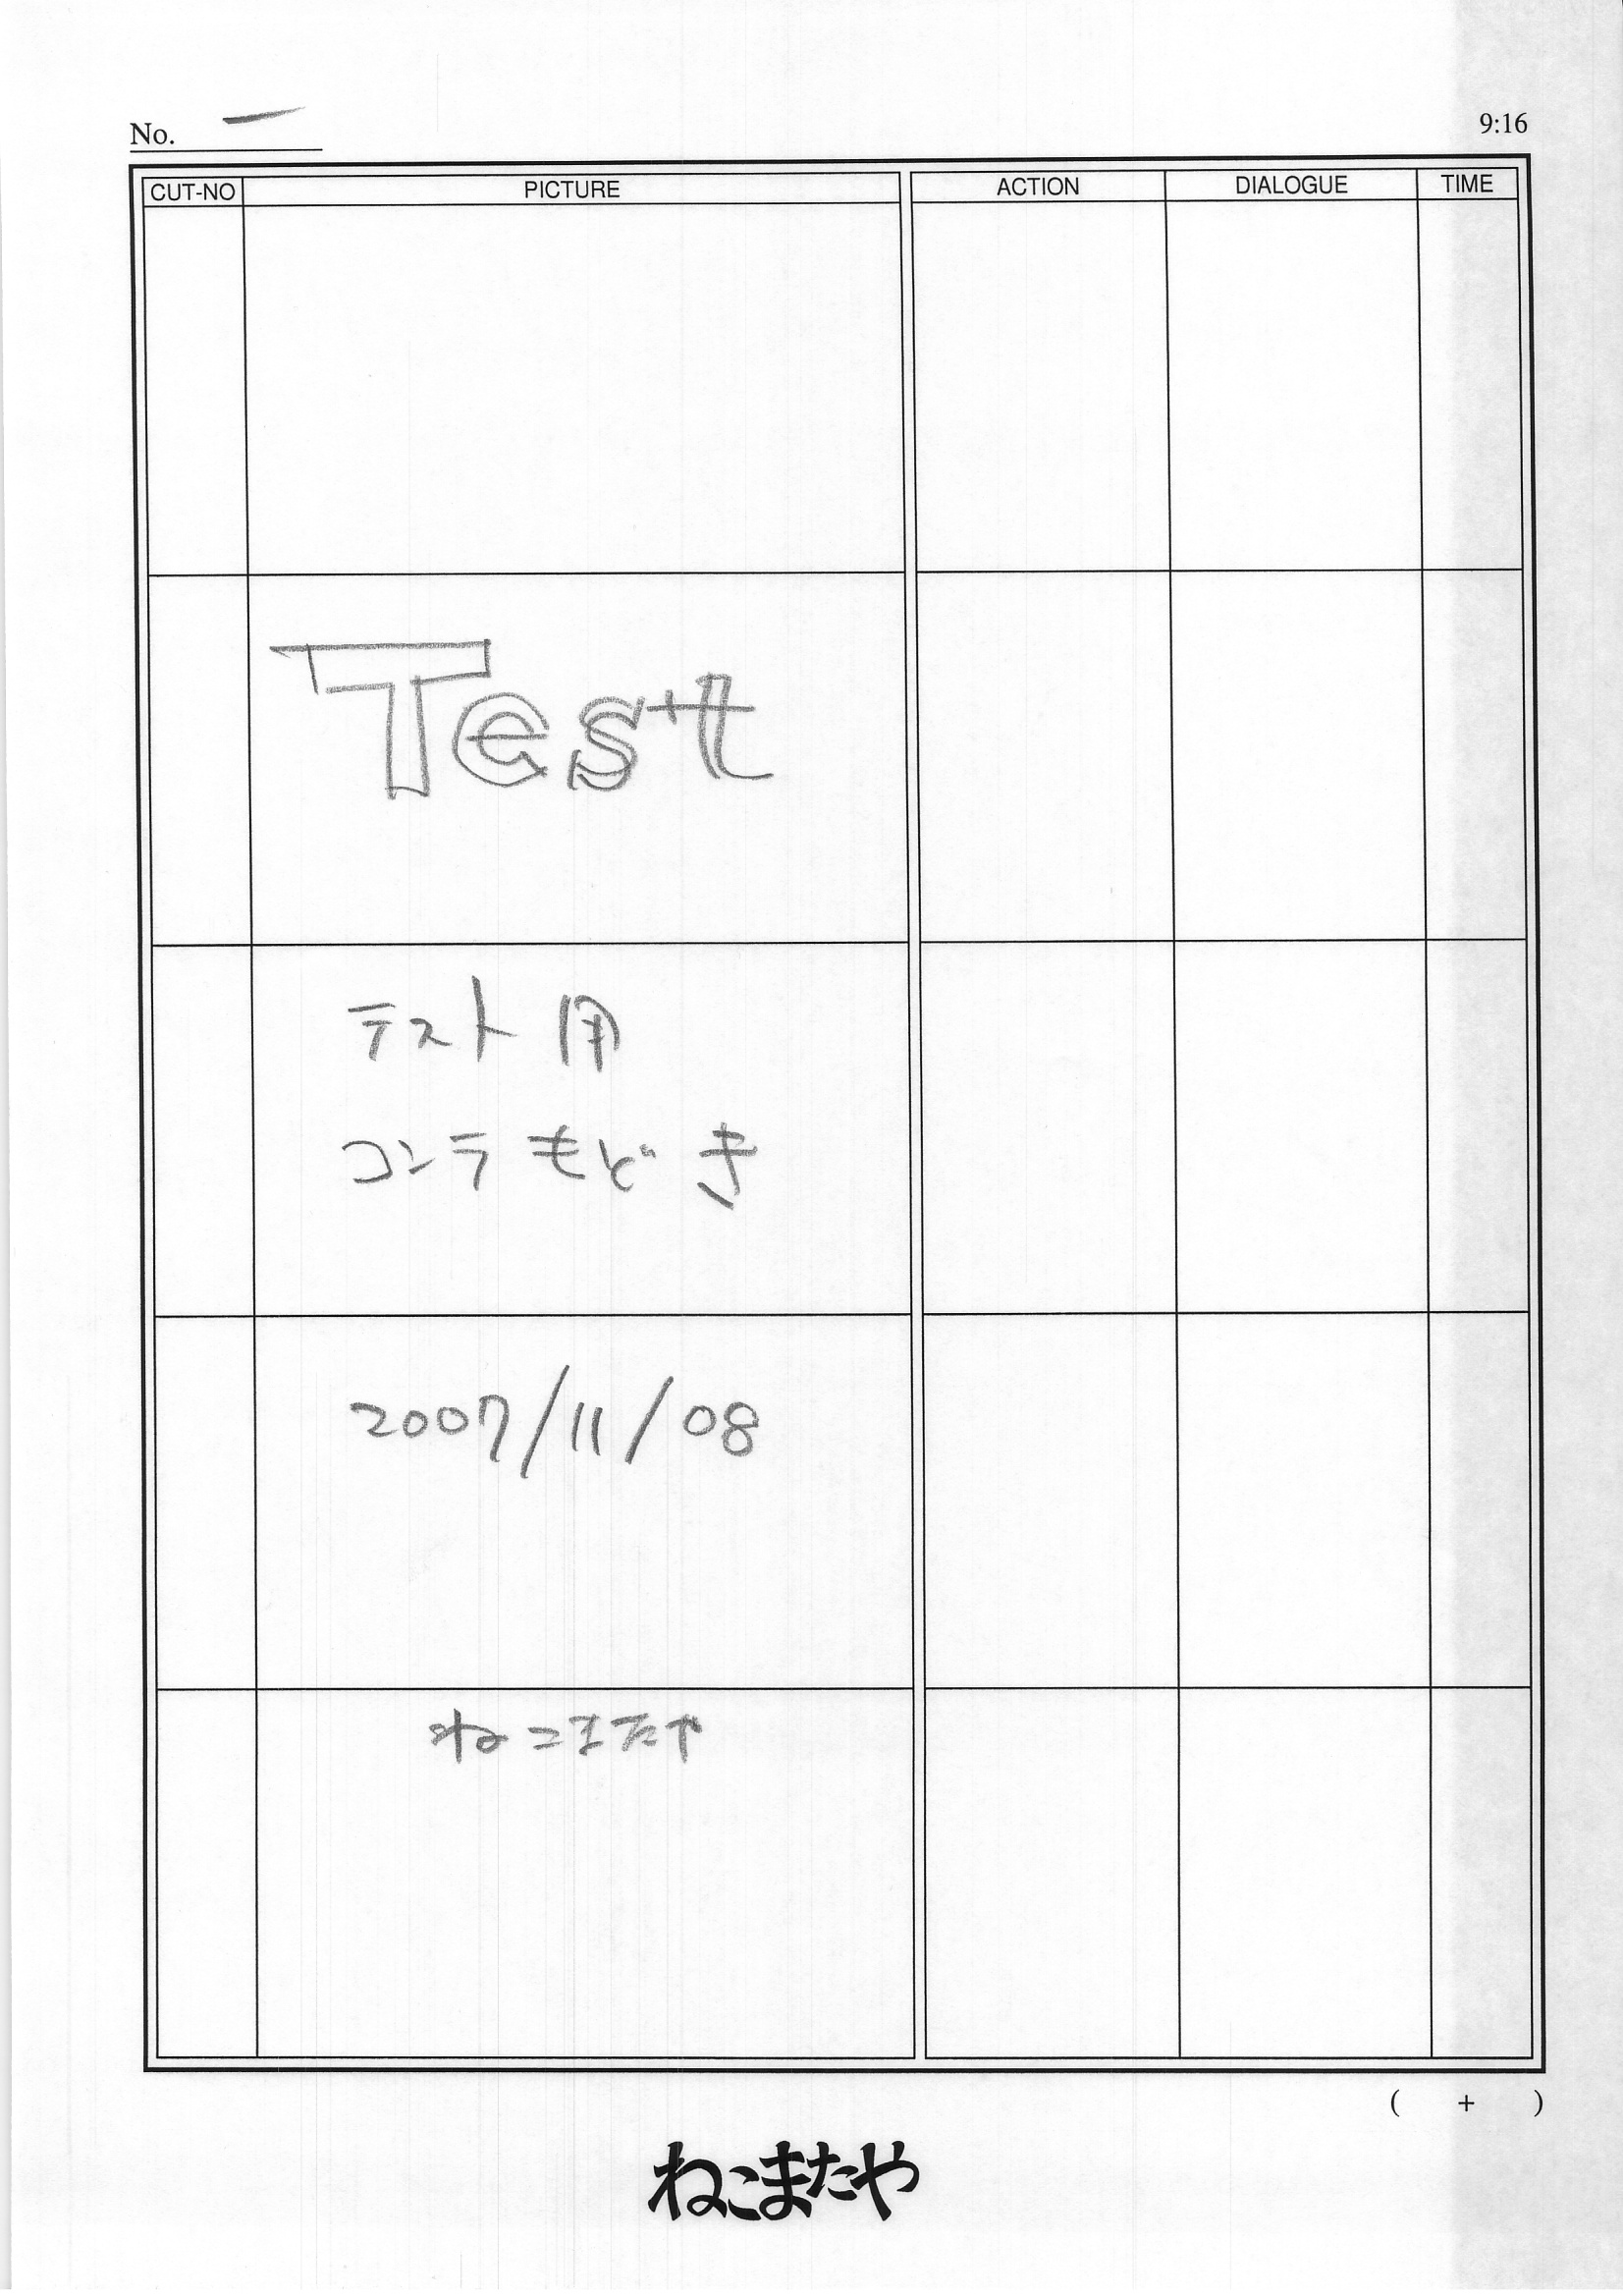 No. 一
9:16
CUT-NO PICTURE ACTION DIALOGUE TIME
Test
テスト用
コンテもどき
2007/11/08
ねこまたや
( + )
ねこまたや